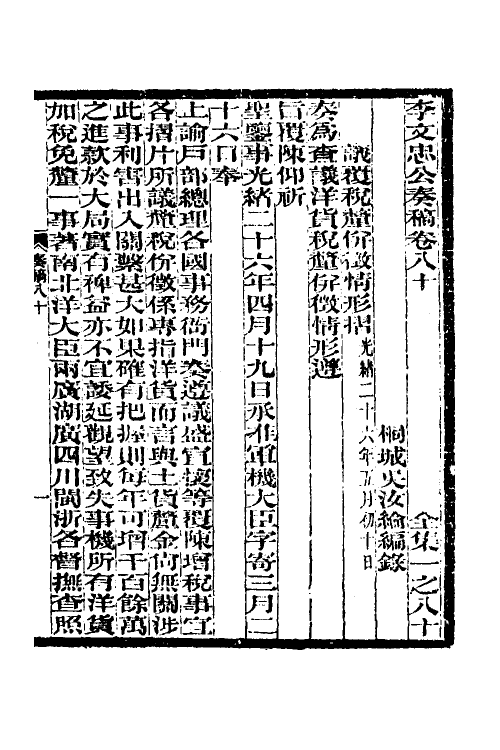 李文忠公奏稿卷八十
全集一之八十
桐城吳汝綸編錄
議覆稅釐併徵情形摺光緒二十六年五月初十日
奏爲查議洋貨稅釐併徵情形遵
旨覆陳仰祈
聖鑒事光緒二十六年四月十九日承准軍機大臣字寄三月二
十六日奉
上諭戶部總理各國事務衙門奏遵議盛宣懷等覆陳增稅事宜
各摺片所議釐稅併徵係專指洋貨而言與土貨釐金尙無關涉
此事利害出入關繫甚大如果確有把握則每年可增千百餘萬
之進款於大局實有裨益亦不宜諉延觀望致失事機所有洋貨
加稅免釐一事著南北洋大臣兩廣湖廣四川閩浙各督撫查照
奏稿八十
一